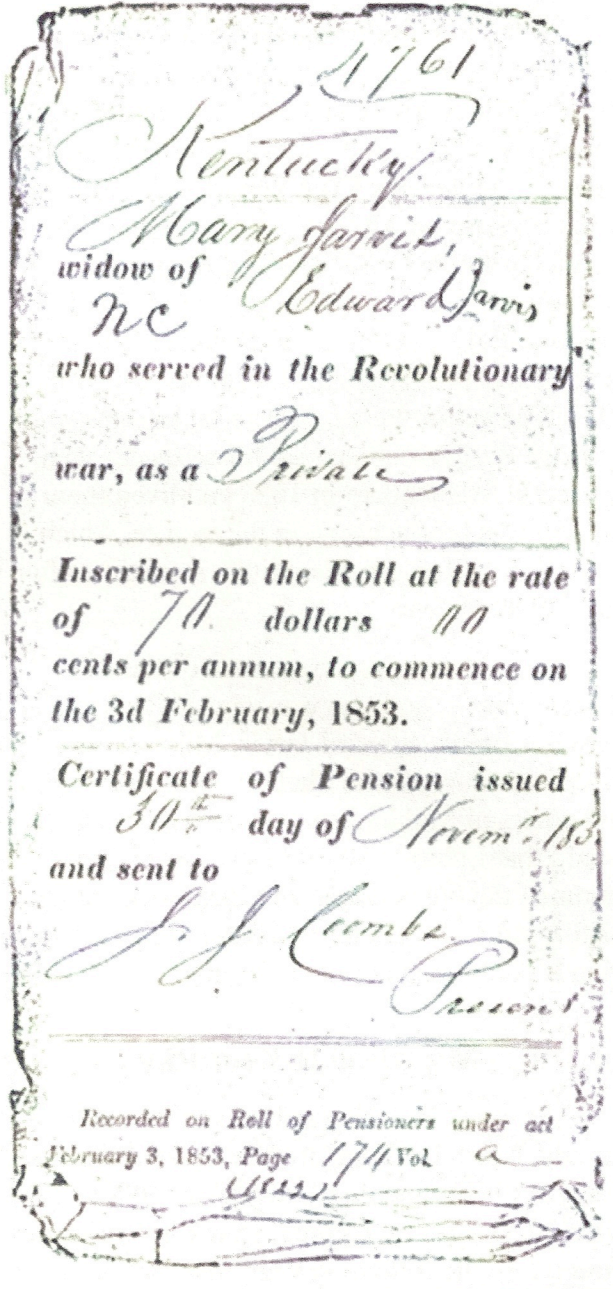 4761
Kentucky
Mary Jarvis,
widow of Edward Jarvis
NC
who served in the Revolutionary
war, as a Private
Inscribed on the Roll at the rate
of 70 dollars 00
cents per annum, to commence on
the 3d February, 1853.
Certificate of Pension issued
30th day of Novemr. 185
and sent to
J J Coombs
Present
Recorded on Roll of Pensioners under act
February 3, 1853, Page 174 Vol. a